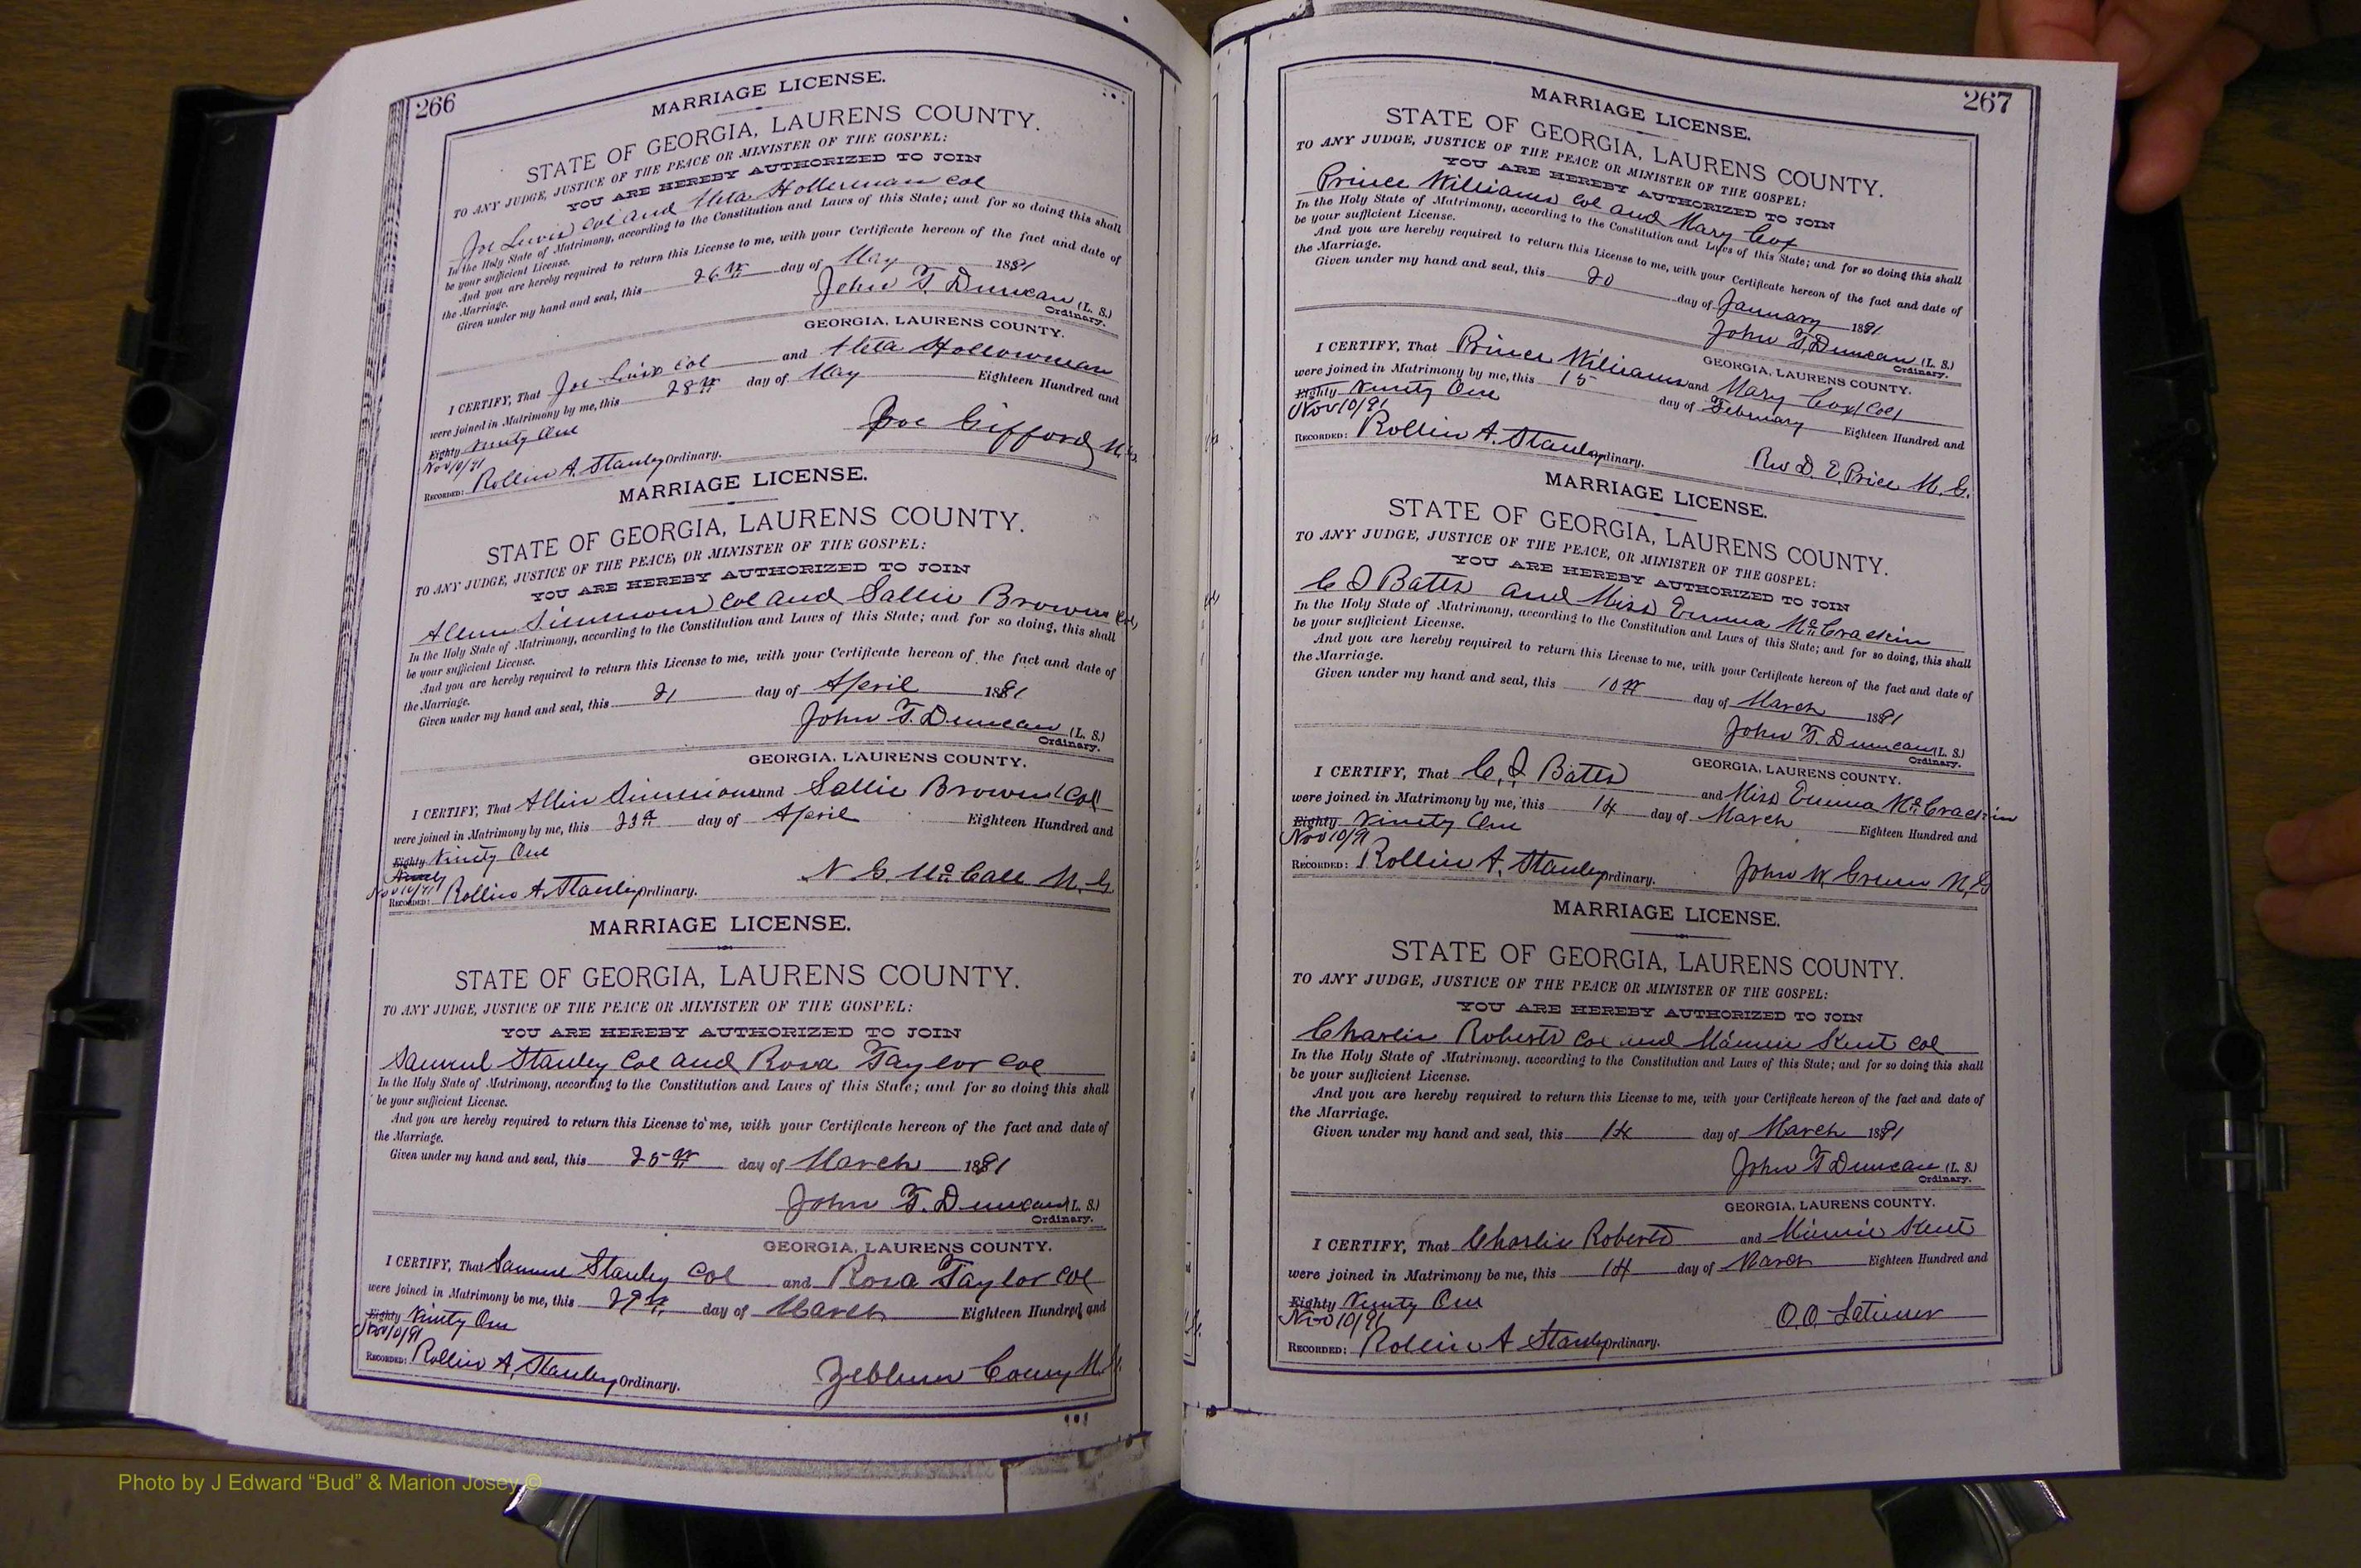 266
MARRIAGE LICENSE.
STATE OF GEORGIA, LAURENS COUNTY.
TO ANY JUDGE, JUSTICE OF THE PEACE OR MINISTER OF THE GOSPEL:
YOU ARE HEREBY AUTHORIZED TO JOIN
Joe Lewis col and Holleman col
In the Holy State of Matrimony, according to the Constitution and Laws of this State; and for so doing this shall
be your sufficient License.
And you are hereby required to return this License to me, with your Certificate hereon of the fact and date of
the Marriage.
Given under my hand and seal, this 26th day of May 1891
John T. Duncan (L. S.)
Ordinary.
GEORGIA, LAURENS COUNTY.
I CERTIFY, That Joe Lewis col and Hollowman
were joined in Matrimony by me, this 28th day of May Eighteen Hundred and
Eighty Ninety One
Nov 10/91 Joe Gifford M.G.
RECORDED: Rollin A. Stanley Ordinary.
MARRIAGE LICENSE.
STATE OF GEORGIA, LAURENS COUNTY.
TO ANY JUDGE, JUSTICE OF THE PEACE, OR MINISTER OF THE GOSPEL:
YOU ARE HEREBY AUTHORIZED TO JOIN
Allen Simmons col and Sallie Brown col
In the Holy State of Matrimony, according to the Constitution and Laws of this State; and for so doing, this shall
be your sufficient License.
And you are hereby required to return this License to me, with your Certificate hereon of the fact and date of
the Marriage.
Given under my hand and seal, this 21 day of April 1891
John T. Duncan (L. S.)
Ordinary.
GEORGIA, LAURENS COUNTY.
I CERTIFY, That Allin Simmions and Sallie Brown (Col)
were joined in Matrimony by me, this 23d day of April Eighteen Hundred and
Eighty Ninety One
Nov 10/91 N. G. McCall M.G.
RECORDED: Rollin A. Stanley Ordinary.
MARRIAGE LICENSE.
STATE OF GEORGIA, LAURENS COUNTY.
TO ANY JUDGE, JUSTICE OF THE PEACE OR MINISTER OF THE GOSPEL:
YOU ARE HEREBY AUTHORIZED TO JOIN
Samuel Stanley Col and Rosa Taylor Col
In the Holy State of Matrimony, according to the Constitution and Laws of this State; and for so doing this shall
be your sufficient License.
And you are hereby required to return this License to me, with your Certificate hereon of the fact and date of
the Marriage.
Given under my hand and seal, this 25th day of March 1891
John T. Duncan (L. S.)
Ordinary.
GEORGIA, LAURENS COUNTY.
I CERTIFY, That Samuel Stanley Col and Rosa Taylor Col
were joined in Matrimony be me, this 29th day of March Eighteen Hundred and
Eighty Ninety One
Nov 10/91
RECORDED: Rollin A. Stanley Ordinary. M.G.
267
MARRIAGE LICENSE.
STATE OF GEORGIA, LAURENS COUNTY.
TO ANY JUDGE, JUSTICE OF THE PEACE OR MINISTER OF THE GOSPEL:
YOU ARE HEREBY AUTHORIZED TO JOIN
Prince Williams col and Mary Cox
In the Holy State of Matrimony, according to the Constitution and Laws of this State; and for so doing this shall
be your sufficient License.
And you are hereby required to return this License to me, with your Certificate hereon of the fact and date of
the Marriage.
Given under my hand and seal, this 20 day of January 1891
John T. Duncan (L. S.)
Ordinary.
GEORGIA, LAURENS COUNTY.
I CERTIFY, That Prince Williams and Mary Cox (Col)
were joined in Matrimony by me, this 15 day of February Eighteen Hundred and
Eighty Ninety One
Nov 10/91
RECORDED: Rollin A. Stanley Ordinary. Rev D. E. Price M. G.
MARRIAGE LICENSE.
STATE OF GEORGIA, LAURENS COUNTY.
TO ANY JUDGE, JUSTICE OF THE PEACE, OR MINISTER OF THE GOSPEL:
YOU ARE HEREBY AUTHORIZED TO JOIN
C I Bates and Miss Emma McCrackin
In the Holy State of Matrimony, according to the Constitution and Laws of this State; and for so doing, this shall
be your sufficient License.
And you are hereby required to return this License to me, with your Certificate hereon of the fact and date of
the Marriage.
Given under my hand and seal, this 10th day of March 1891
John T. Duncan (L. S.)
Ordinary.
GEORGIA, LAURENS COUNTY.
I CERTIFY, That C. I. Bates and Miss Emma McCrackin
were joined in Matrimony by me, this 14 day of March Eighteen Hundred and
Eighty Ninety One
Nov 10/91
RECORDED: Rollin A. Stanley Ordinary. John W. Green M.G
MARRIAGE LICENSE.
STATE OF GEORGIA, LAURENS COUNTY.
TO ANY JUDGE, JUSTICE OF THE PEACE OR MINISTER OF THE GOSPEL:
YOU ARE HEREBY AUTHORIZED TO JOIN
Charlie Roberts Col and Minnie Kent col
In the Holy State of Matrimony, according to the Constitution and Laws of this State; and for so doing this shall
be your sufficient License.
And you are hereby required to return this License to me, with your Certificate hereon of the fact and date of
the Marriage.
Given under my hand and seal, this 14 day of March 1891
John T Duncan (L. S.)
Ordinary.
GEORGIA, LAURENS COUNTY.
I CERTIFY, That Charlie Roberts and Minnie Kent
were joined in Matrimony be me, this 14 day of March Eighteen Hundred and
Eighty Ninety One
Nov 10/91 O. O. Latimer
RECORDED: Rollin A Stanley Ordinary.
Photo by J Edward “Bud” & Marion Josey ©